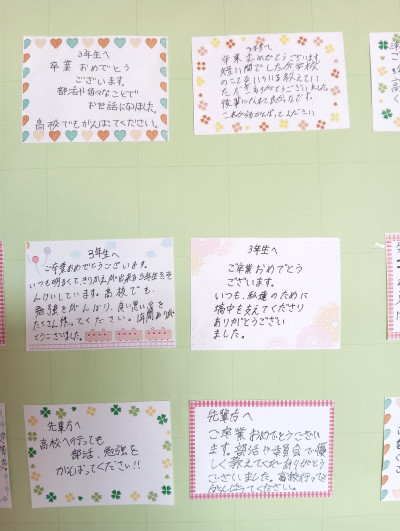 3年生へ
卒業おめでとう
ございます。
部活や色々なことで
お世話になりました。
高校でもがんばってください。
3年生へ
卒業おめでとうございます。
短い間でしたが学校
のことをいろいろ教えてい
ただきありがとうございました。
これからもがんばってください
3年生へ
ご卒業おめでとうございます。
いつも明るくて、きりかえが出来る3年生をそ
んけいしています。高校でも、
勉強をがんばり、良い思い出を
たくさん作ってください。1年間ありが
とうございました。
3年生へ
ご卒業おめでとう
ございます。
いつも、私達のために
橘中を支えてくださり
ありがとうござい
ました。
先輩方へ
高校へ行っても
部活、勉強を
がんばってください!!
先輩方へ
ご卒業おめでとうござい
ます。部活や委員会で優
しく教えてくださりありがとう
ございました。高校行っても
がんばってください。